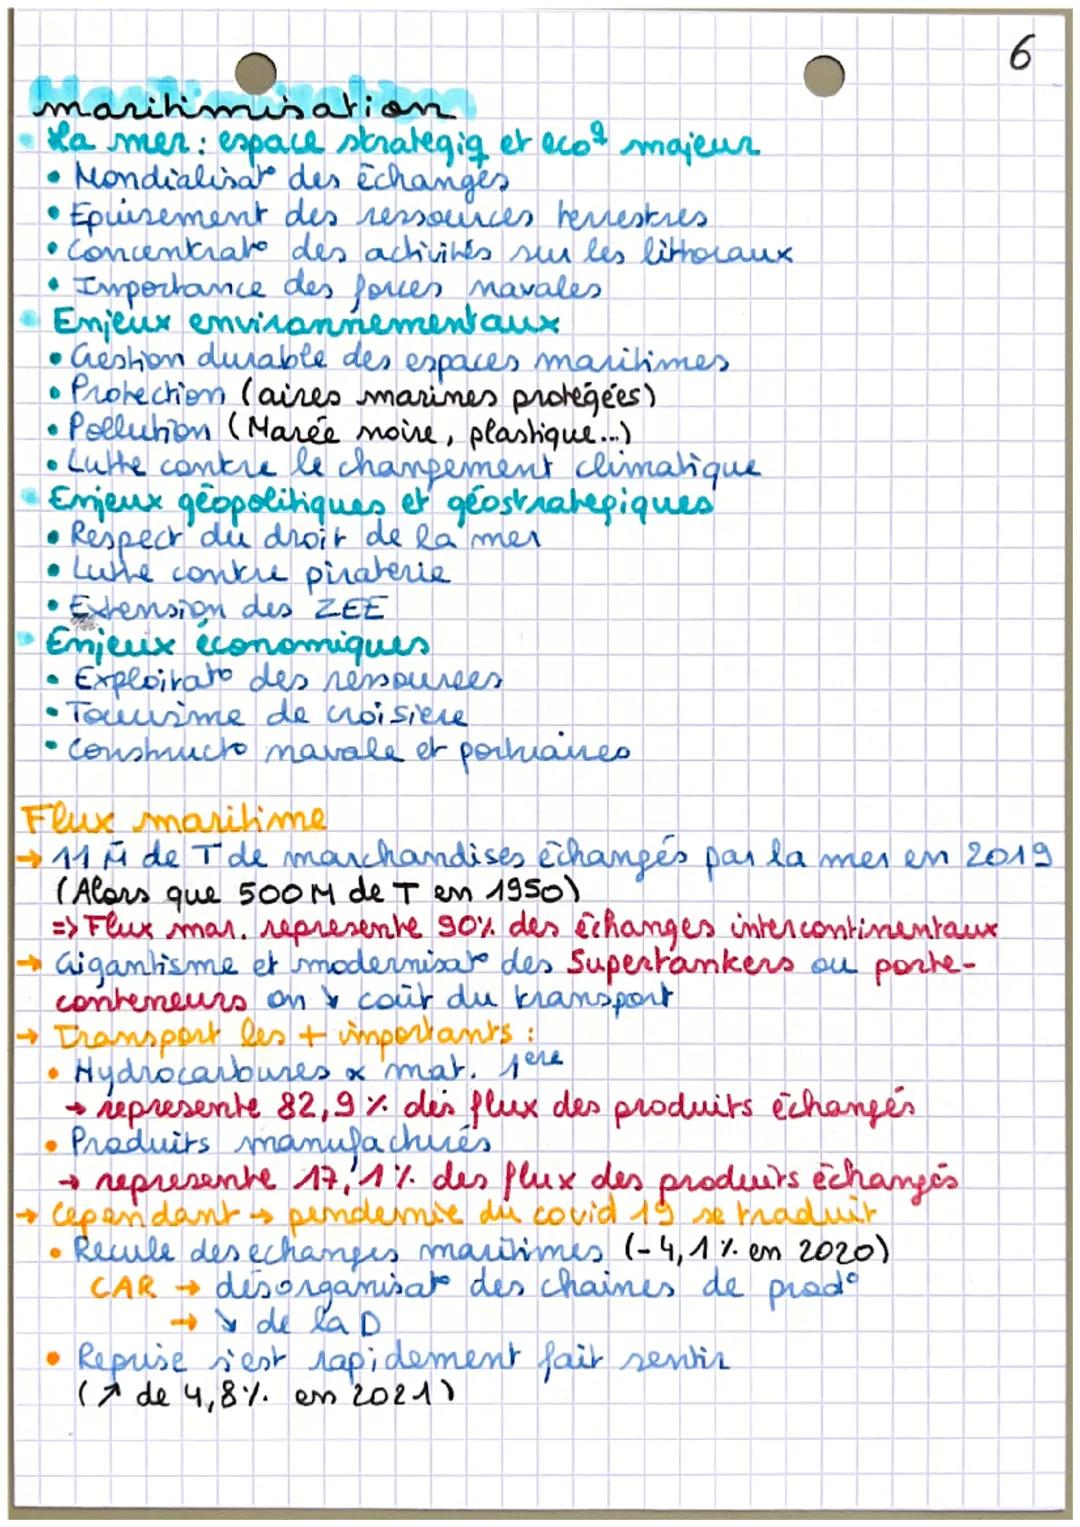 6
maritimisation
La mer : espace strategiq et ecoq majeur
• Mondialisato des échanges
• Epuisement des ressources terrestres
• Concentrato des activités sur les littoraux
• Importance des forces navales
Enjeux environnementaux
• Gestion durable des espaces maritimes
• Protection (aires marines protégées)
• Pollution (Marée noire, plastique...)
• Lutte contre le changement climatique
Enjeux géopolitiques et géostrategiques
• Respect du droit de la mer
• Lutte contre piraterie
• Extension des ZEE
Enjeux économiques
• Exploitato des ressources
• Tourisme de croisiere
• Constructo navale et portuaires
Flux maritime
→ 11 M̄ de T de marchandises échangés par la mer en 2019
(Alors que 500 M de T en 1950)
=> Flux mar. represente 90% des échanges intercontinentaux
→ Gigantisme et modernisato des Supertankers ou porte-
conteneurs on ↘ coût du transport
→ Transport les + importants :
• Hydrocarbures & mat. 1ère
→ represente 82,9 % des flux des produits échangés
• Produits manufacturés
→ represente 17,1 % des flux des produits échangés
→ Cependant → pendemie du covid 19 se traduit
• Recule des echanges maritimes (-4,1 % en 2020)
CAR → désorganisato des chaines de prodo
→ ↘ de la D
• Reprise s'est rapidement fait sentir
(↗ de 4,8 %. en 2021)